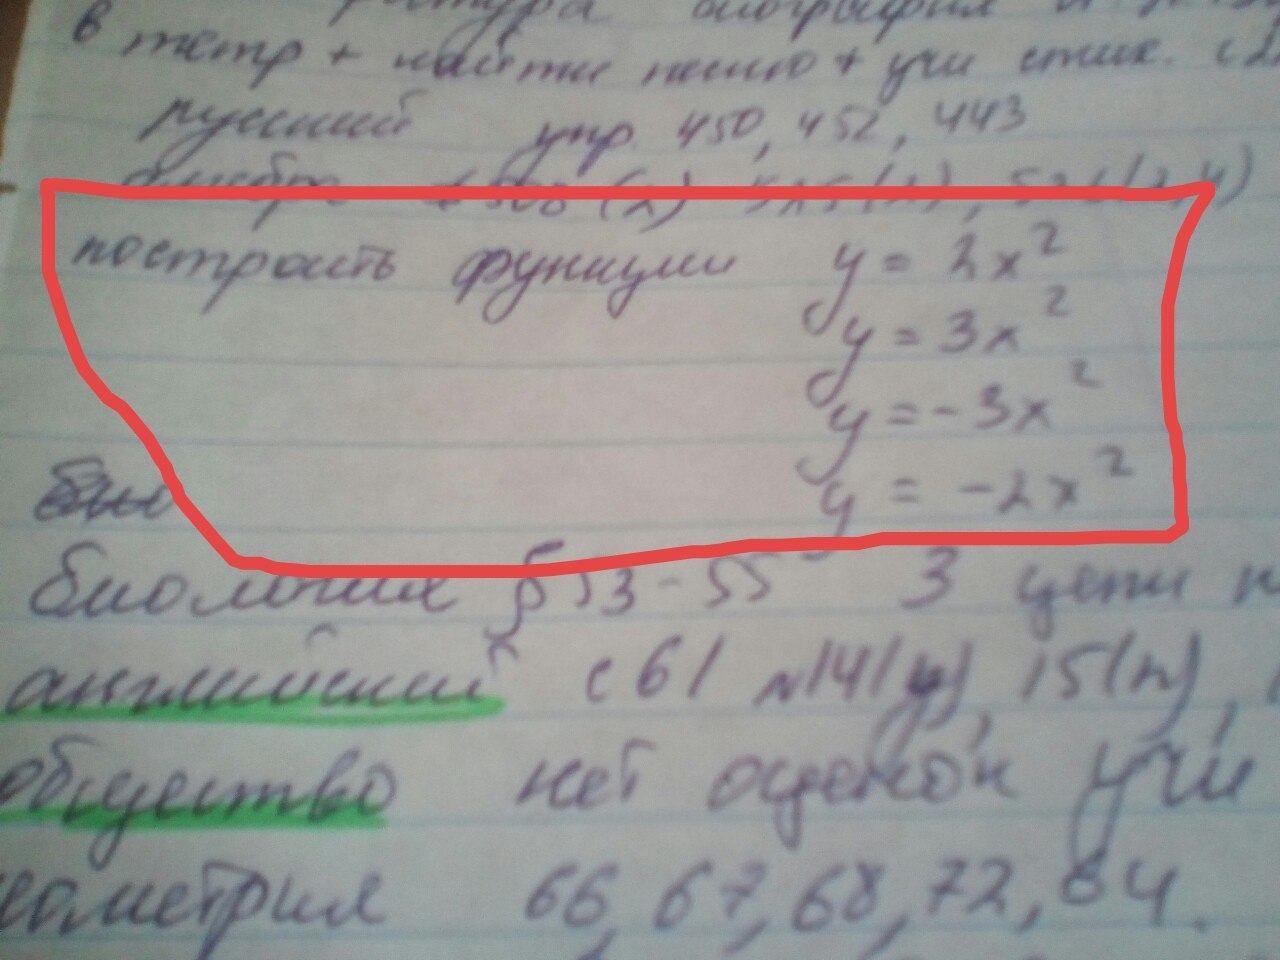 в тетр + найти песню + учи стих.
русский упр. 450, 452, 443
построить функции y = 2x²
y = 3x²
y = -3x²
y = -2x²
биология §53-55 3 цепи
английский с 61 №14(у), 15(п),
общество нет оценок учи
геометрия 66, 67, 68, 72, 84.